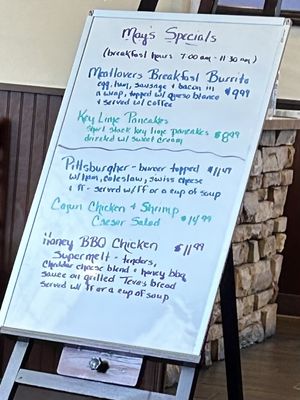 May's Specials
(breakfast hours 7:00 am - 11:30 am)
Meatlovers Breakfast Burrito
egg, ham, sausage + bacon in
a wrap, topped w/ queso blanco $9.99
+ served w/ coffee
Key Lime Pancakes
short stack key lime pancakes $8.99
drizzled w/ sweet cream
Pittsburgher - burger topped $11.49
w/ ham, coleslaw, swiss cheese
+ ff - served w/ ff or a cup of soup
Cajun Chicken + Shrimp
Caesar Salad $14.99
Honey BBQ Chicken $11.99
Supermelt - tenders,
cheddar cheese blend + honey bbq
sauce on grilled Texas bread
served w/ ff or a cup of soup